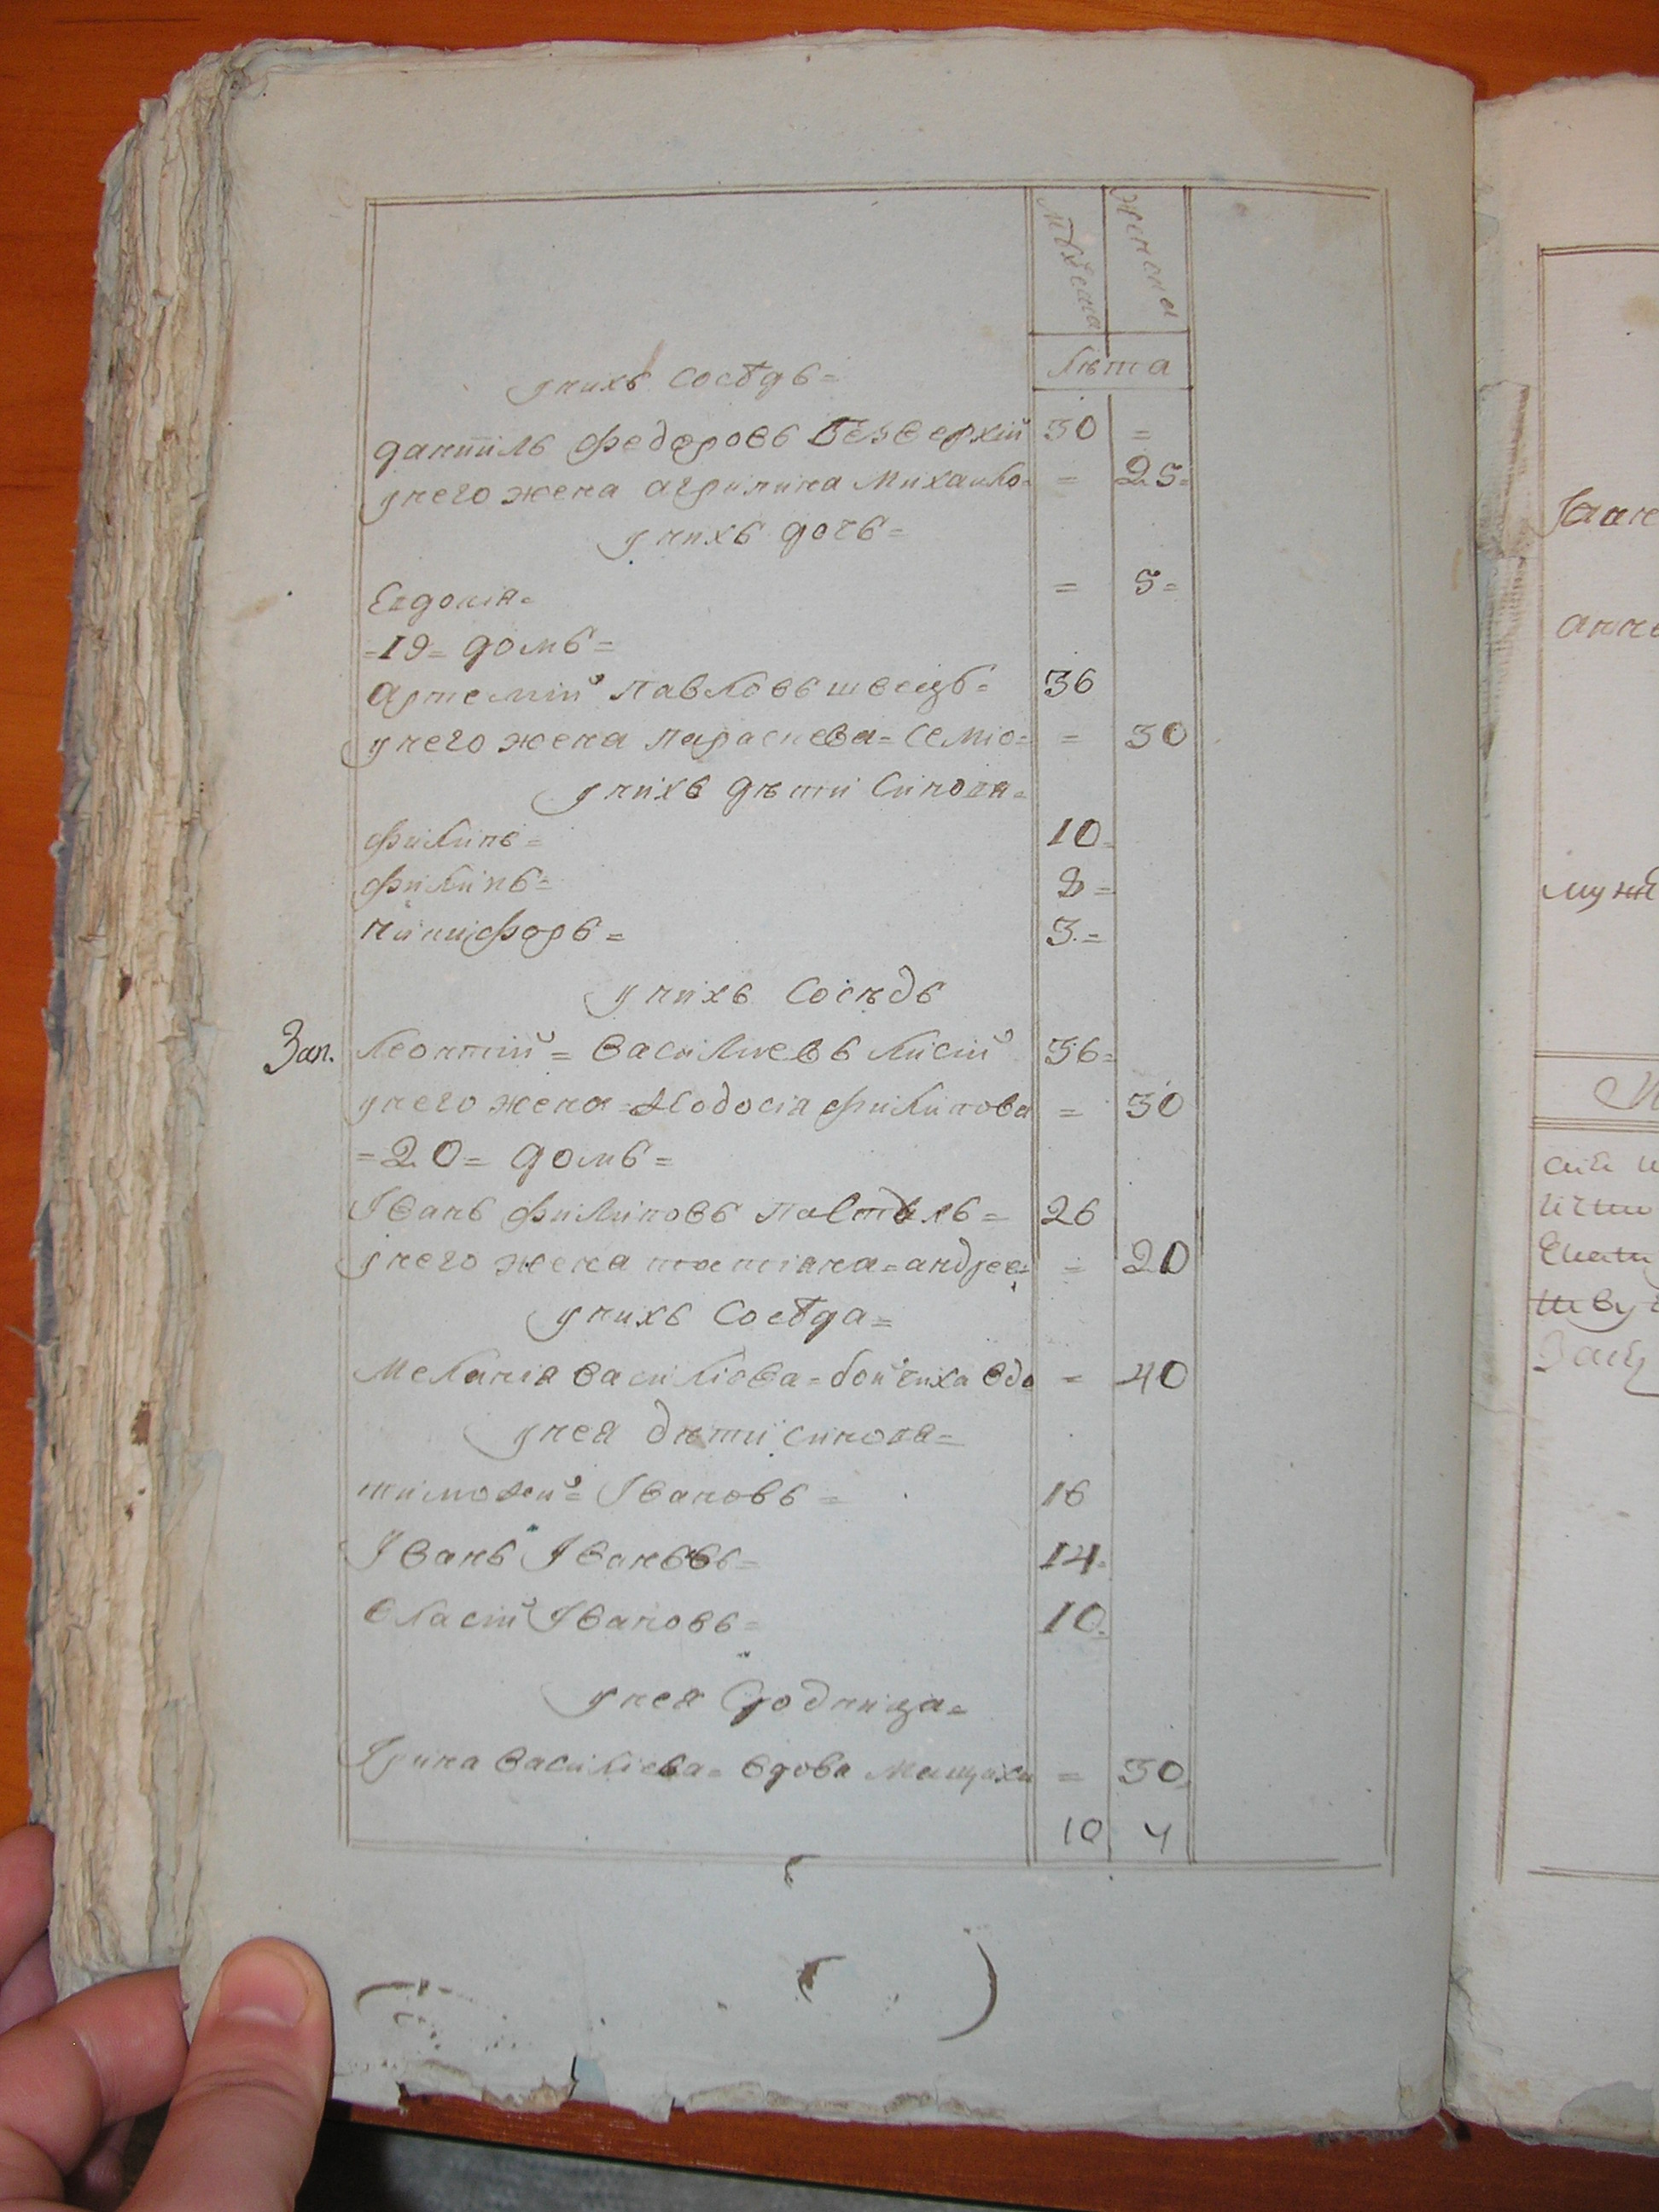 мужеска женска
лѣта
у нихъ сосѣдъ =
даніилъ федоровъ Безверхій 30 =
у него жена агрипина Михаило= = 25=
у нихъ дочь =
Евдокія= = 5=
=19= домъ=
Артемій павловъ швецъ= 36
у него жена параскева= семіо= = 30
у нихъ дѣти синовя=
филипъ= 10=
филипъ= 8=
никифоръ = 3.=
у нихъ сосѣдъ
Зап. Леонтій = василиевъ лисій 36=
у него жена= Ѳодосія филипова = 30
=20= домъ=
Іванъ филиповъ пастухъ= 26
у него жена татіана= андрее= = 20
у нихъ сосѣда=
Меланія василіова= бойчиха вдо = 40
у нея дѣти синовя=
тимоѳей= Івановъ = 16
Іванъ Івановъ= 14=
власій Івановъ= 10=
у нея сродница=
Ірина василіева= вдова = 30
10 4
аннѣ